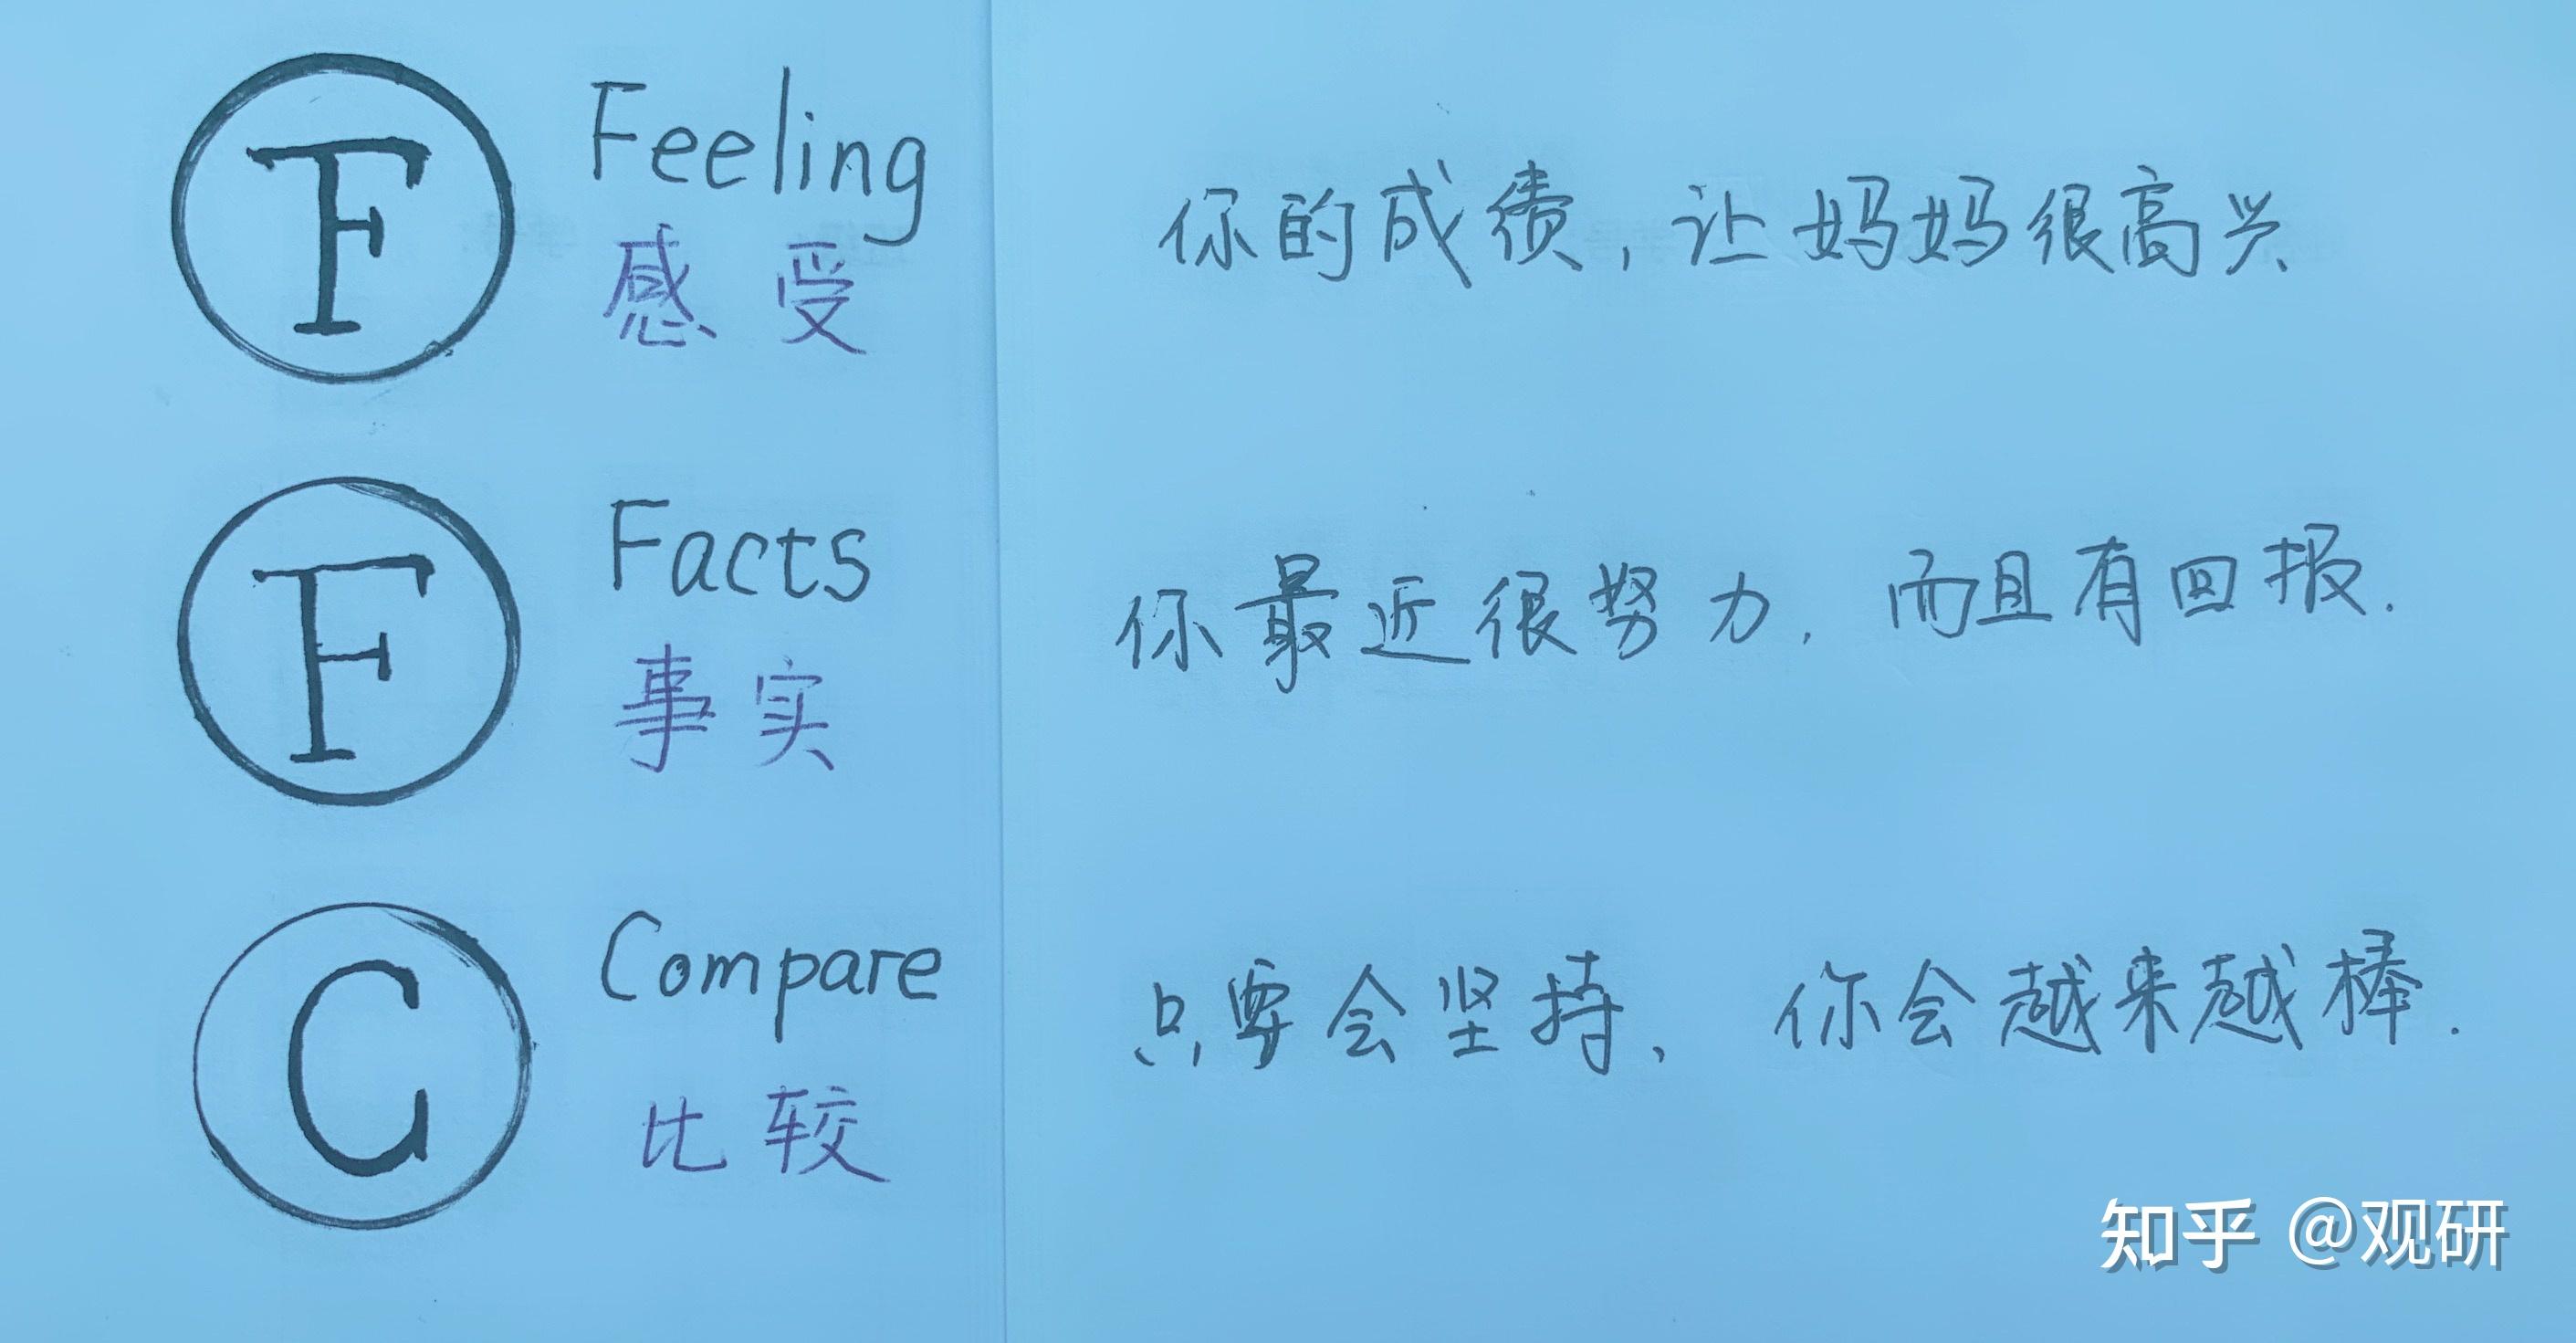 F
Feeling
感受
你的成绩，让妈妈很高兴、
F
Facts
事实
你最近很努力，而且有回报.
C
Compare
比较
只要会坚持、你会越来越棒.
知乎 @观研